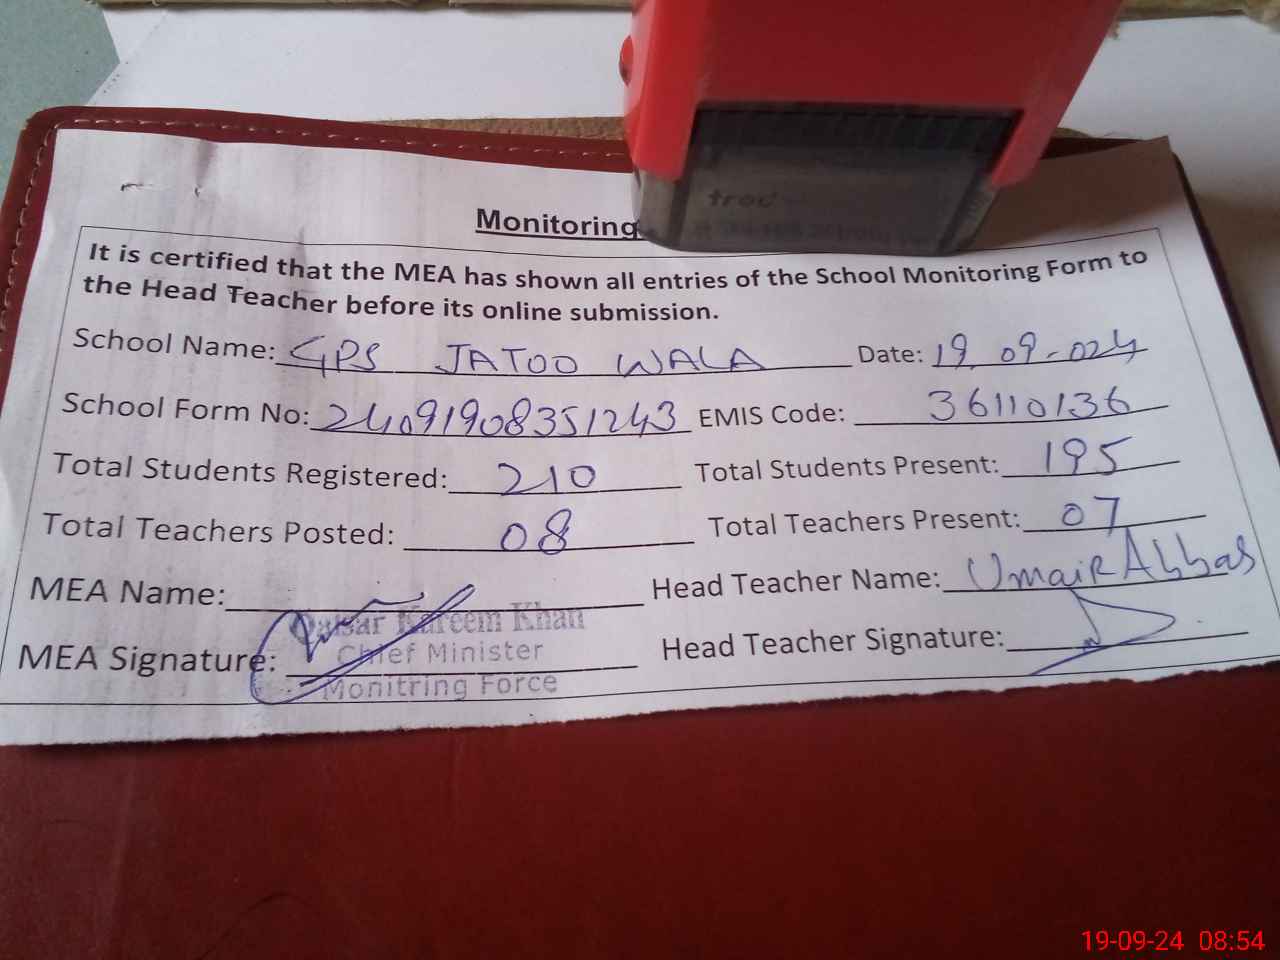 Monitoring
It is certified that the MEA has shown all entries of the School Monitoring Form to
the Head Teacher before its online submission.
School Name: GPS JATOO WALA Date: 19.09-024
School Form No: 24091908351243 EMIS Code: 36110136
Total Students Registered: 210 Total Students Present: 195
Total Teachers Posted: 08 Total Teachers Present: 07
MEA Name: Head Teacher Name: Umair Abbas
Qaisar Kareem Khan
Chief Minister
MEA Signature: Head Teacher Signature:
Monitring Force
19-09-24 08:54